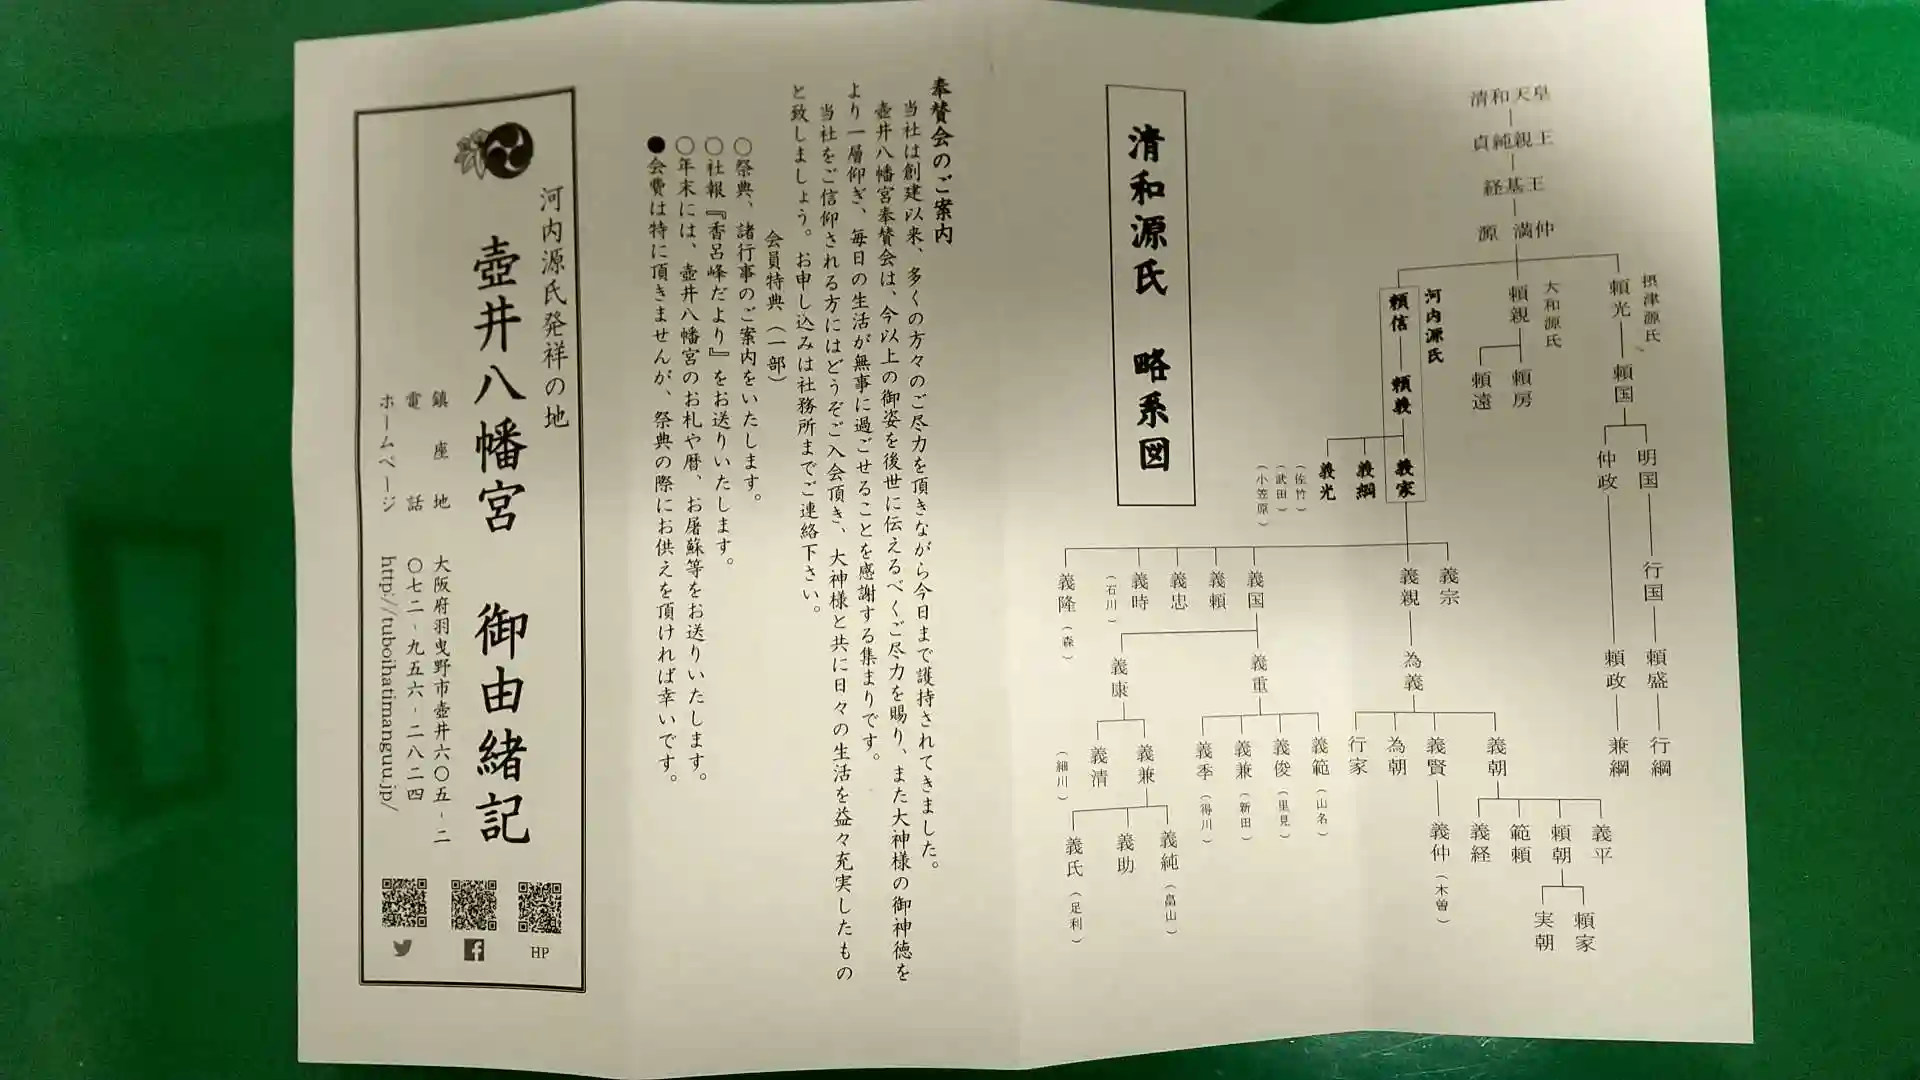 清和源氏　略系図
清和天皇
貞純親王
経基王
源　満仲
摂津源氏
頼光
頼国
明国
行国
頼盛
行綱
仲政
頼政
兼綱
大和源氏
頼親
頼房
頼遠
河内源氏
頼信
頼義
義家
義綱
義光
（佐竹）
（武田）
（小笠原）
義宗
義親
為義
義朝
義平
頼朝
頼家
実朝
範頼
義経
義賢
義仲（木曽）
為朝
行家
義国
義重
義範（山名）
義俊（里見）
義兼（新田）
義季（得川）
義康
義兼
義純（畠山）
義助
義氏（足利）
義清
（細川）
義頼
義忠
義時
（石川）
義隆（森）
奉賛会のご案内
当社は創建以来、多くの方々のご尽力を頂きながら今日まで護持されてきました。
壺井八幡宮奉賛会は、今以上の御姿を後世に伝えるべくご尽力を賜り、また大神様の御神徳を
より一層仰ぎ、毎日の生活が無事に過ごせることを感謝する集まりです。
当社をご信仰される方にはどうぞご入会頂き、大神様と共に日々の生活を益々充実したもの
と致しましょう。お申し込みは社務所までご連絡下さい。
会員特典（一部）
○祭典、諸行事のご案内をいたします。
○社報『香呂峰だより』をお送りいたします。
○年末には、壺井八幡宮のお札や暦、お屠蘇等をお送りいたします。
●会費は特に頂きませんが、祭典の際にお供えを頂ければ幸いです。
河内源氏発祥の地
壺井八幡宮　御由緒記
鎮座地　大阪府羽曳野市壺井六〇五-二
電話　〇七二-九五六-二八二四
ホームページ　http://tuboihatimanguu.jp/
HP